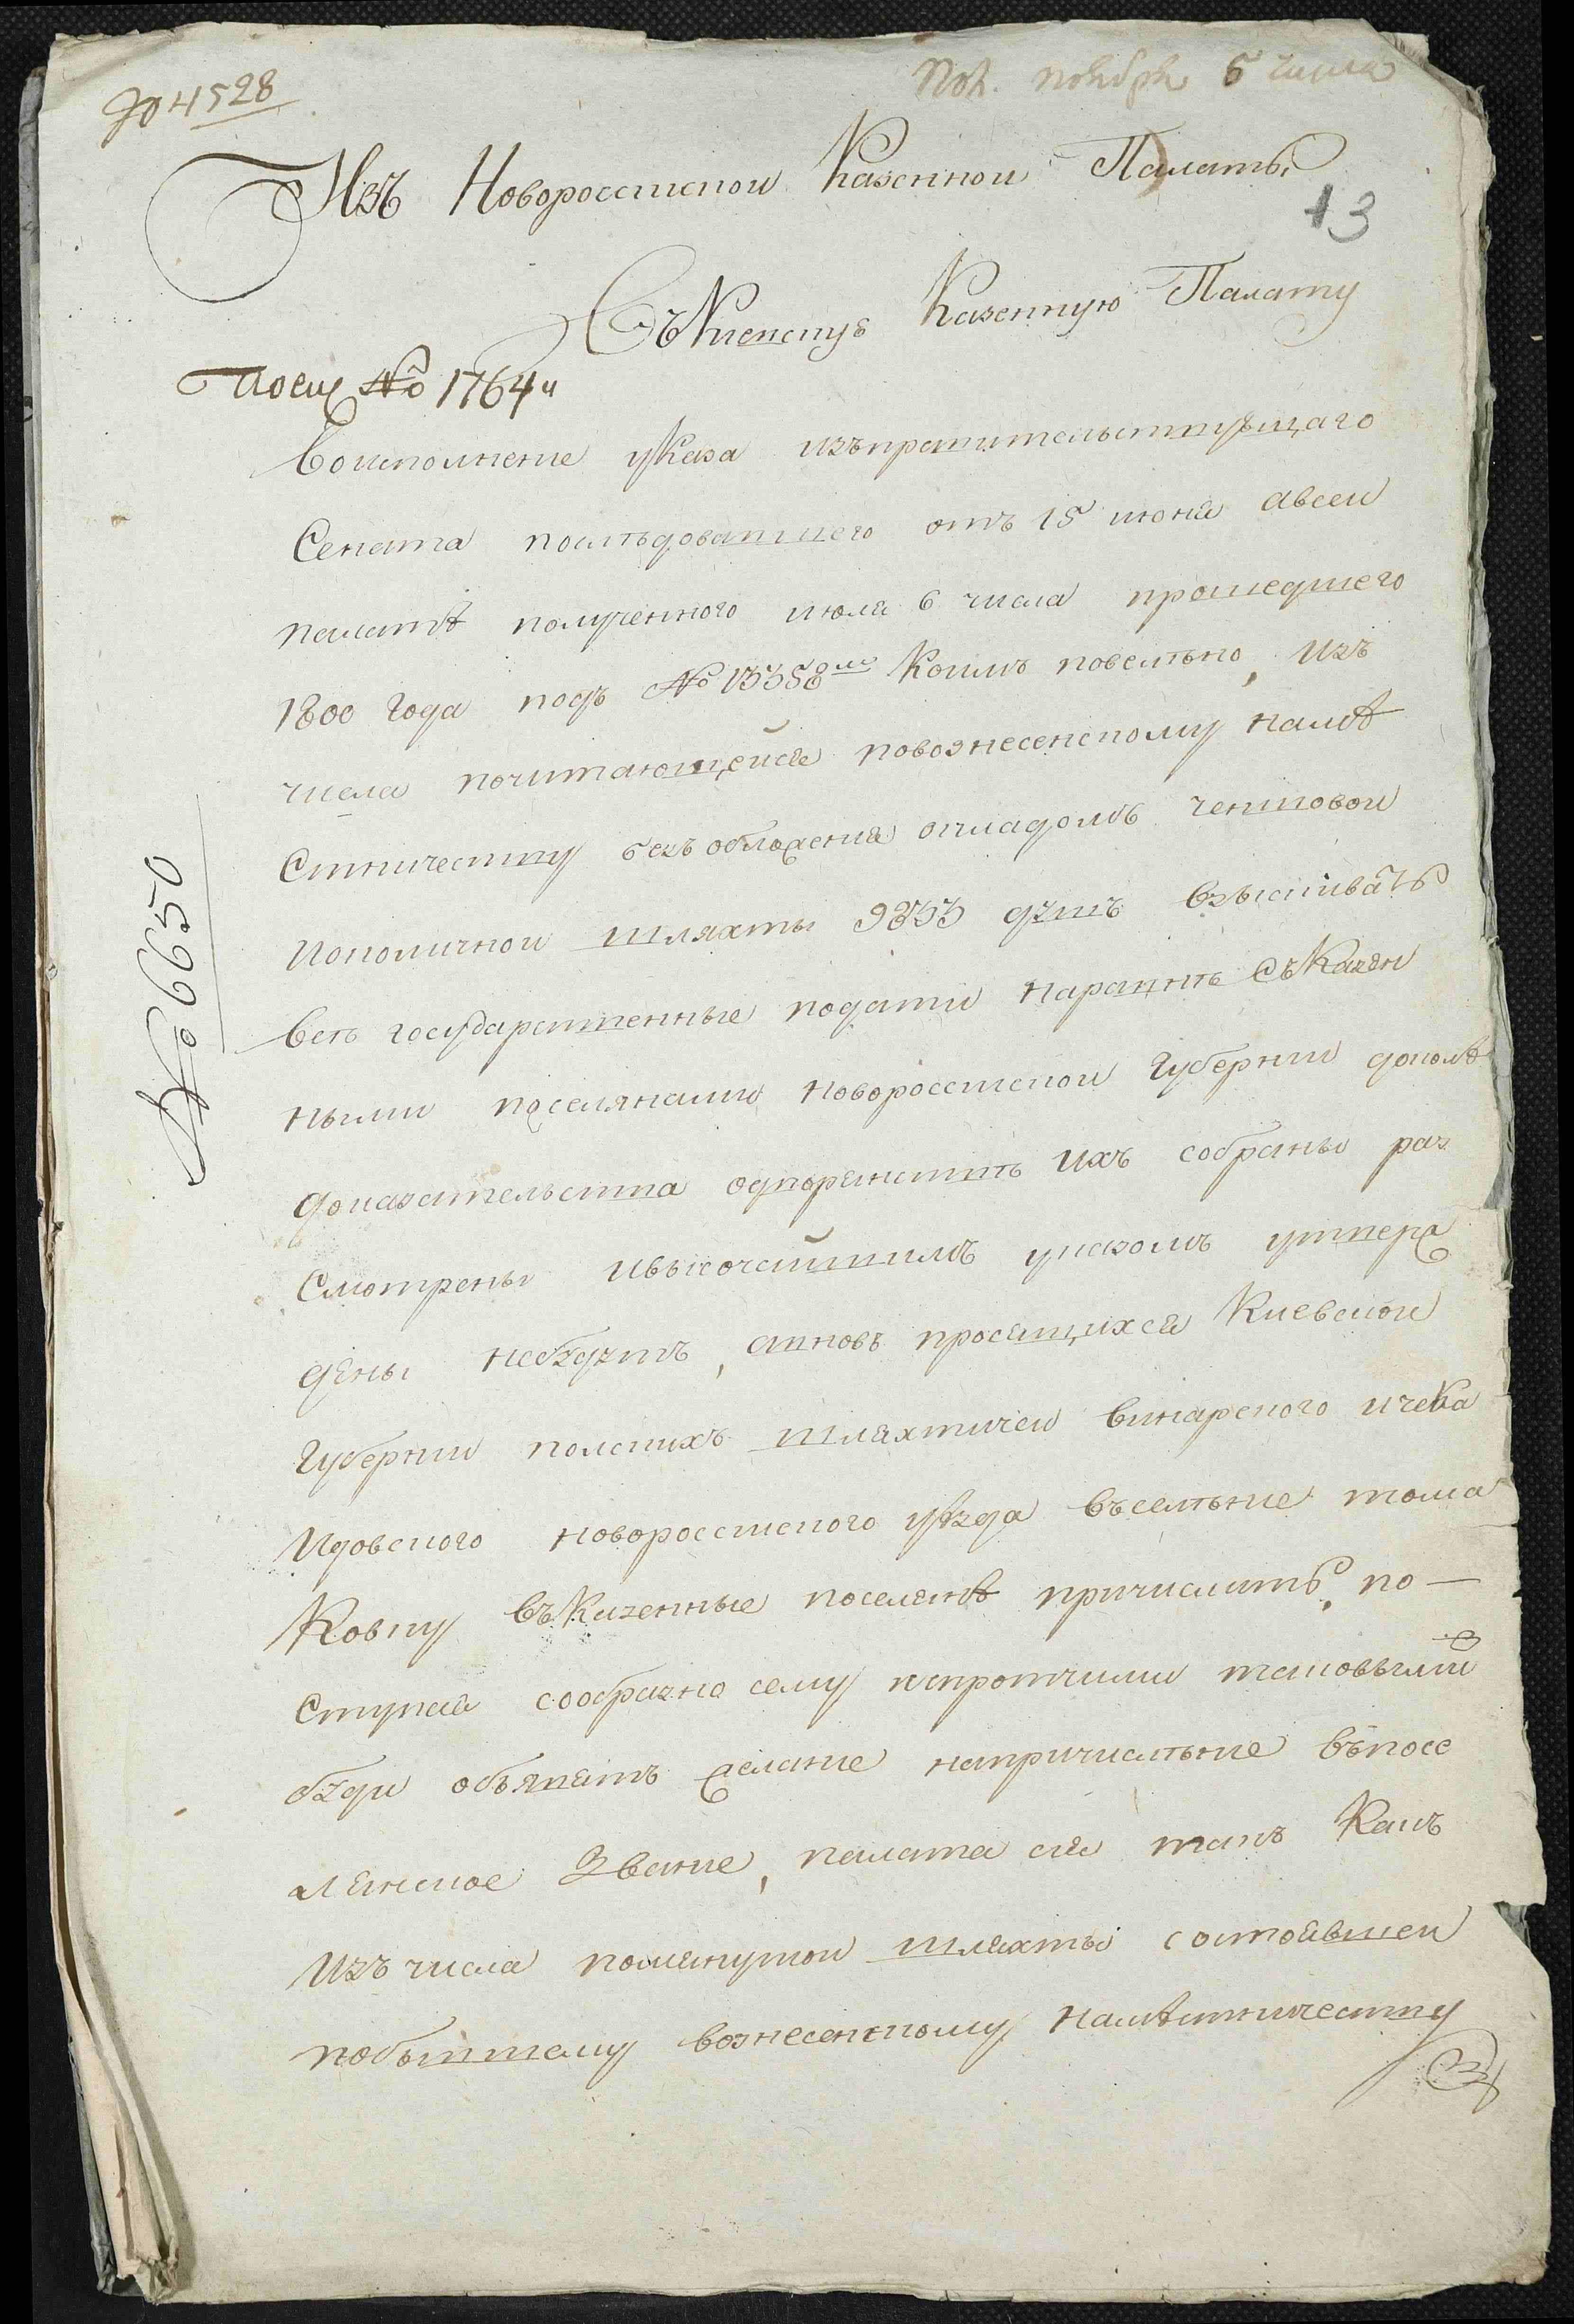 № 4528
Пол. ноября 6 числа
Изъ Новороссискои Казеннои Палаты
13
Въ Киевскую Казенную Палату
№ 1764й
Воисполнение указа изъправительствующаго
Сената последовавшего отъ 15 июня авсеи
палатѣ полученного июля 6 числа прошедшего
1800 года подъ № 13358мъ коимъ повелѣно, изъ
числа почитающейся повознесенскому намѣ
стничеству безъ обложения окладомъ чиншовои
иоколичнои шляхты 9833 душъ взыскивать
всѣ государственные подати наравнѣ съказен
ными поселянами новороссискои губернии доколѣ
доказательства одворянствѣ ихъ собраны раз
смотрены ивысочайшимъ указомъ утверж
дены небудутъ, авновь просящихся Киевскои
губернии полскихъ шляхтичеи винарского ичека
идовского новороссиского уѣзда въселѣние тома
ковку въказенные поселянѣ причислить, по-
ступая сообразно сему испротчими таковыми
буди объявятъ желание напричислѣние въпосе
лянское звание, палата сия такъ какъ
изъ числа помянутои шляхты состоявшеи
побывшему вознесенскому намѣстничеству
№ 6950